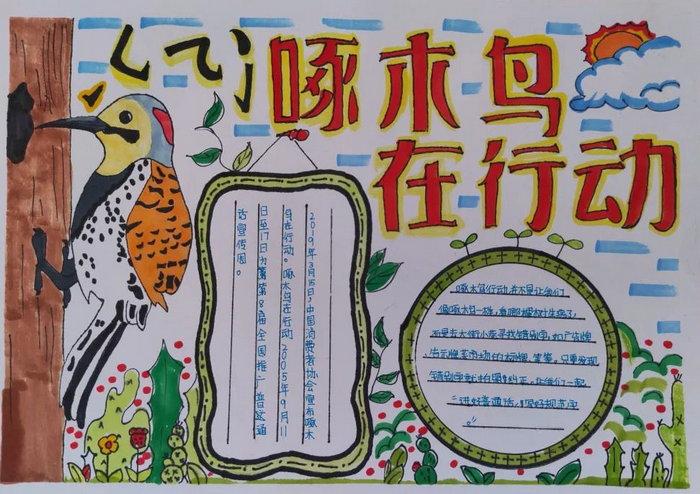 啄木鸟
在行动
2019年3月15日,中国消费者协会宣布啄木
鸟在行动。啄木鸟在行动 2005年9月11
日至17日为第8届全国推广普这通
话宣传周。
啄木鸟行动,并不是让我们
像啄木鸟一样,有哪棵树生病了,
而是去大街小巷寻找错别字,如广告牌
告示牌,的标语、菜单,只要发现
错别字就拍照纠正,让我们一起
“讲好普通话,写好规范字
”